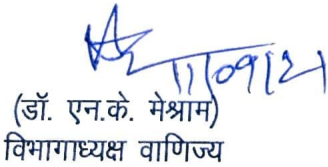 11/09/21
(डॉ. एन.के. मेश्राम)
विभागाध्यक्ष वाणिज्य